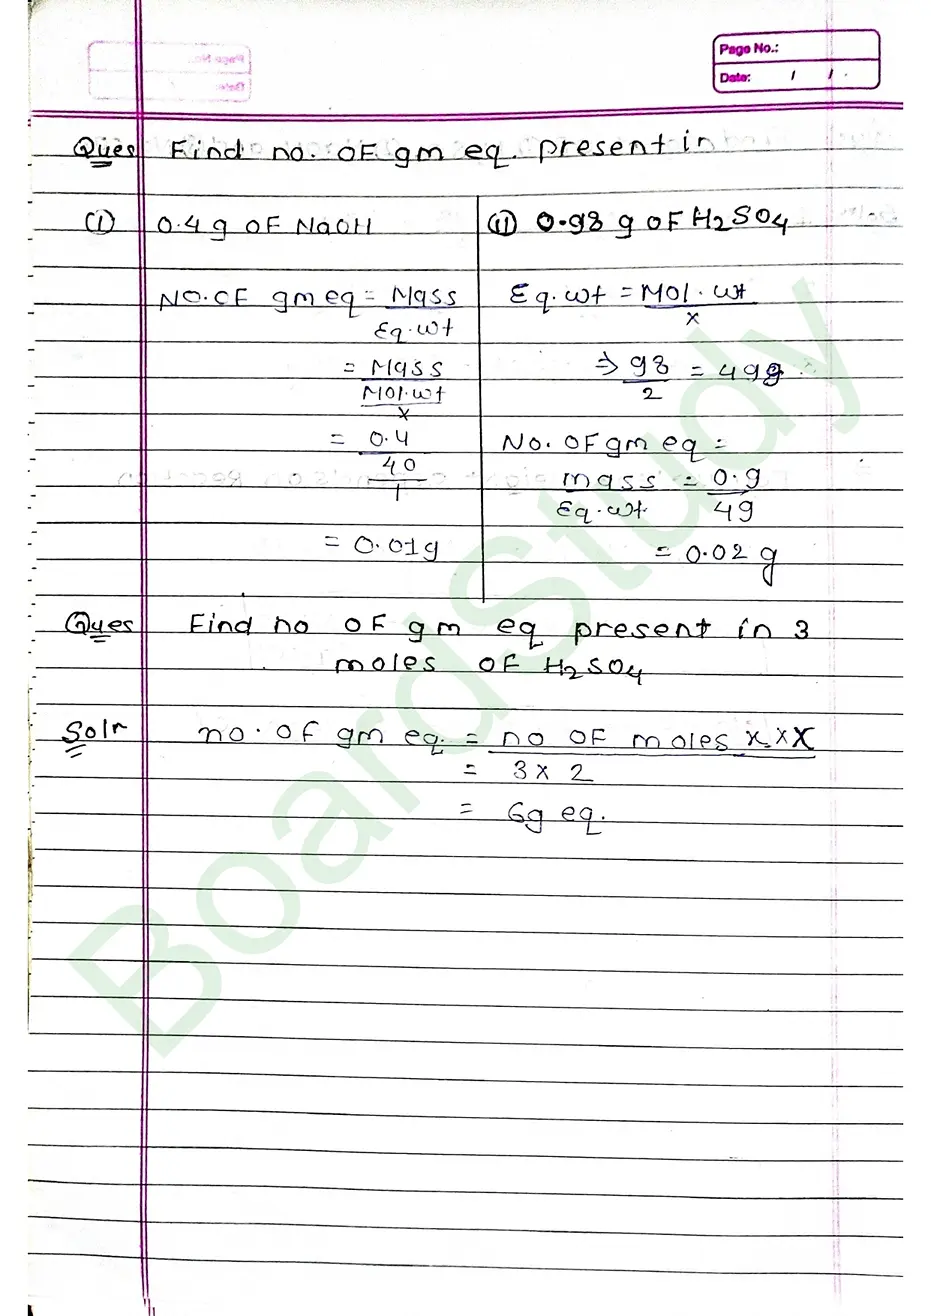 Page No.:
Date: / /
Ques Find no. of gm eq. present in
(I) 0.4 g of NaOH
No. of gm eq = Mass
Eq. wt
= Mass
Mol. wt
x
= 0.4
40
1
= 0.01g
(II) 0.98 g of H2SO4
Eq. wt = Mol. wt
x
⇒ 98 = 49g
2
No. of gm eq =
mass = 0.9
Eq. wt. 49
= 0.02 g
Ques Find no of gm eq present in 3
moles of H2SO4
Soln no. of gm eq. = no of moles x x X
= 3 x 2
= 6g eq.
BoardStudy